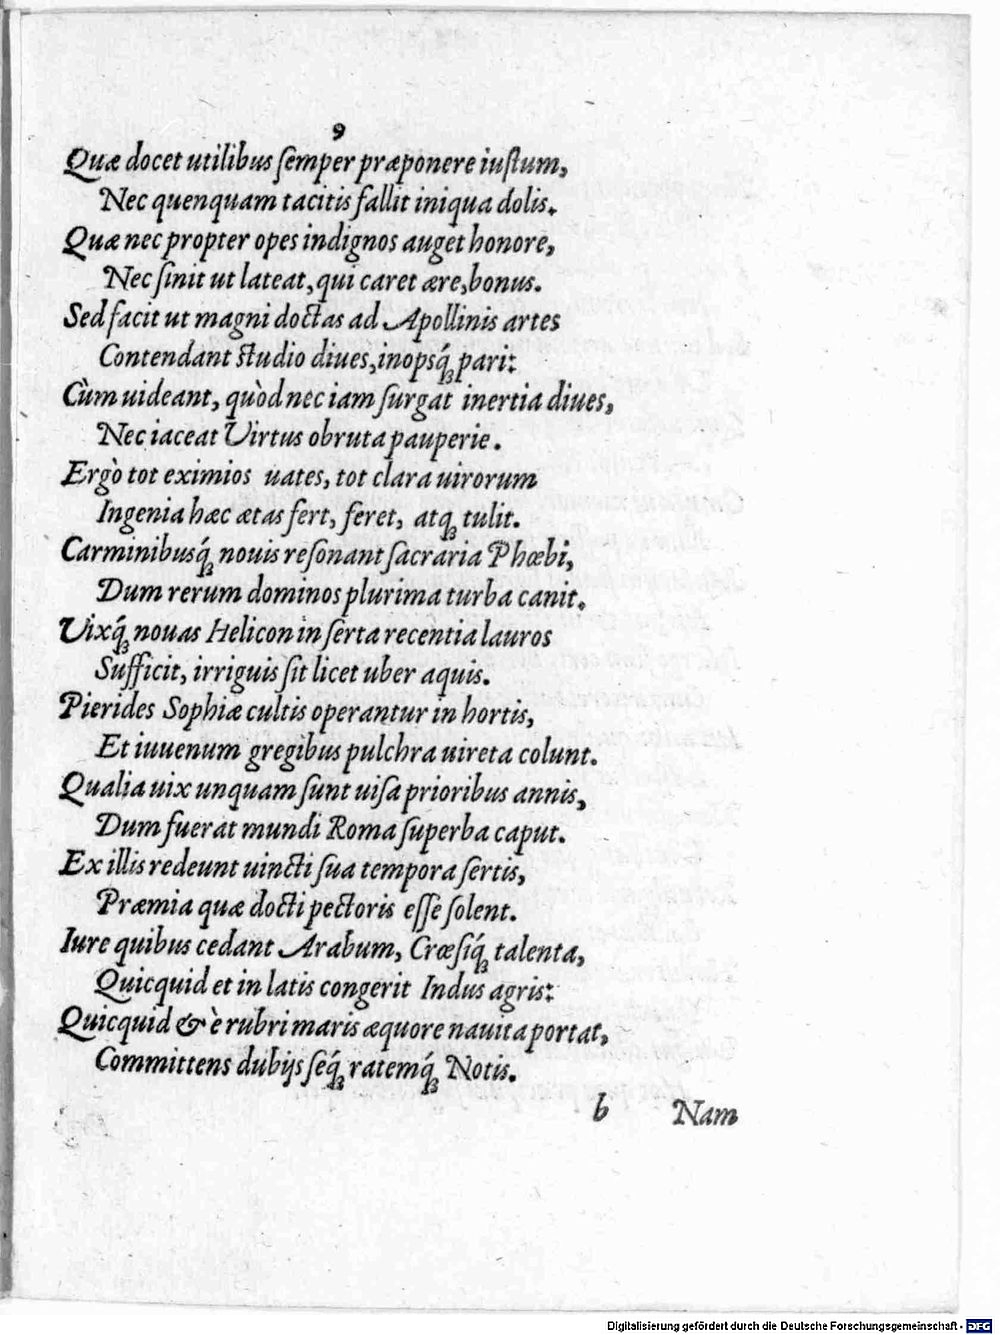 9
Quæ docet utilibus ſemper præponere iuſtum,
Nec quenquam tacitis fallit iniqua dolis.
Quæ nec propter opes indignos auget honore,
Nec ſinit ut lateat, qui caret ære, bonus.
Sed facit ut magni doctas ad Apollinis artes
Contendant ſtudio diues, inopsq́ꝫ pari:
Cùm uideant, quòd nec iam ſurgat inertia diues,
Nec iaceat Virtus obruta pauperie.
Ergò tot eximios uates, tot clara uirorum
Ingenia hæc ætas fert, feret, atqꝫ tulit.
Carminibusq́ꝫ nouis reſonant ſacraria Phœbi,
Dum rerum dominos plurima turba canit.
Vixq́ꝫ nouas Helicon in ſerta recentia lauros
Sufficit, irriguis ſit licet uber aquis.
Pierides Sophiæ cultis operantur in hortis,
Et iuuenum gregibus pulchra uireta colunt.
Qualia uix unquam ſunt uiſa prioribus annis,
Dum fuerat mundi Roma ſuperba caput.
Ex illis redeunt uincti ſua tempora ſertis,
Præmia quæ docti pectoris eſſe ſolent.
Iure quibus cedant Arabum, Crœſiq́ꝫ talenta,
Quicquid et in latis congerit Indus agris:
Quicquid & è rubri maris æquore nauita portat,
Committens dubijs ſeq́ꝫ ratemq́ꝫ Notis.
b Nam
Digitalisierung gefördert durch die Deutsche Forschungsgemeinschaft - DFG